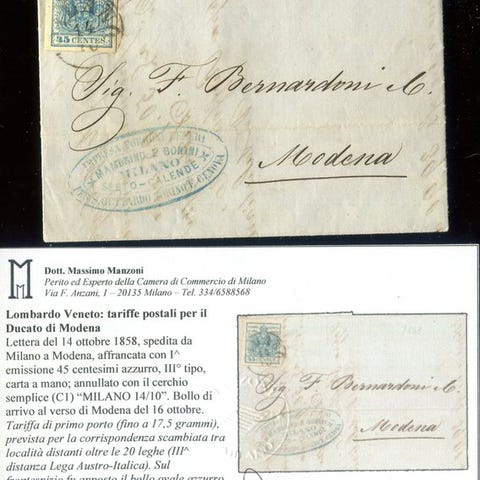 45 CENTES.
Sig. F. Bernardoni e C.
MAMBRINO & BONINI
MILANO
SESTO-CALENDE
Modena
Dott. Massimo Manzoni
Perito ed Esperto della Camera di Commercio di Milano
Via F. Anzani, 1 – 20135 Milano – Tel. 334/6588568
Lombardo Veneto: tariffe postali per il
Ducato di Modena
Lettera del 14 ottobre 1858, spedita da
Milano a Modena, affrancata con I^
emissione 45 centesimi azzurro, III° tipo,
carta a mano; annullato con il cerchio
semplice (C1) “MILANO 14/10”. Bollo di
arrivo al verso di Modena del 16 ottobre.
Tariffa di primo porto (fino a 17,5 grammi),
prevista per la corrispondenza scambiata tra
località distanti oltre le 20 leghe (III^
distanza Lega Austro-Italica). Sul
frontespizio fu apposto il bollo ovale azzurro
Sig. F. Bernardoni e C.
Modena